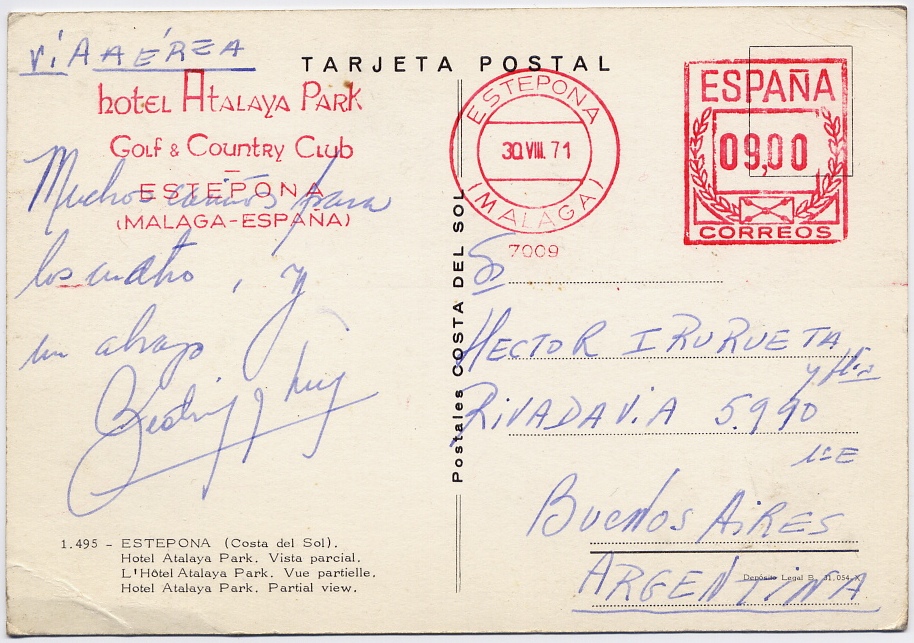 VíA AÉREA
TARJETA POSTAL
hotel Atalaya Park
Golf & Country Club
ESTEPONA
(MALAGA-ESPAÑA)
ESTEPONA
30.VIII.71
(MALAGA)
7009
ESPAÑA
09,00
CORREOS
Muchos cariños para
los cuatro, y
un abrazo
Postales COSTA DEL SOL
Sr
HECTOR IRURUETA
y Flia
RIVADAVIA 5.990
1º E
BUENOS AIRES
ARGENTINA
1.495 - ESTEPONA (Costa del Sol).
Hotel Atalaya Park. Vista parcial.
L'Hôtel Atalaya Park. Vue partielle.
Hotel Atalaya Park. Partial view.
Depósito Legal B. 31.054-X